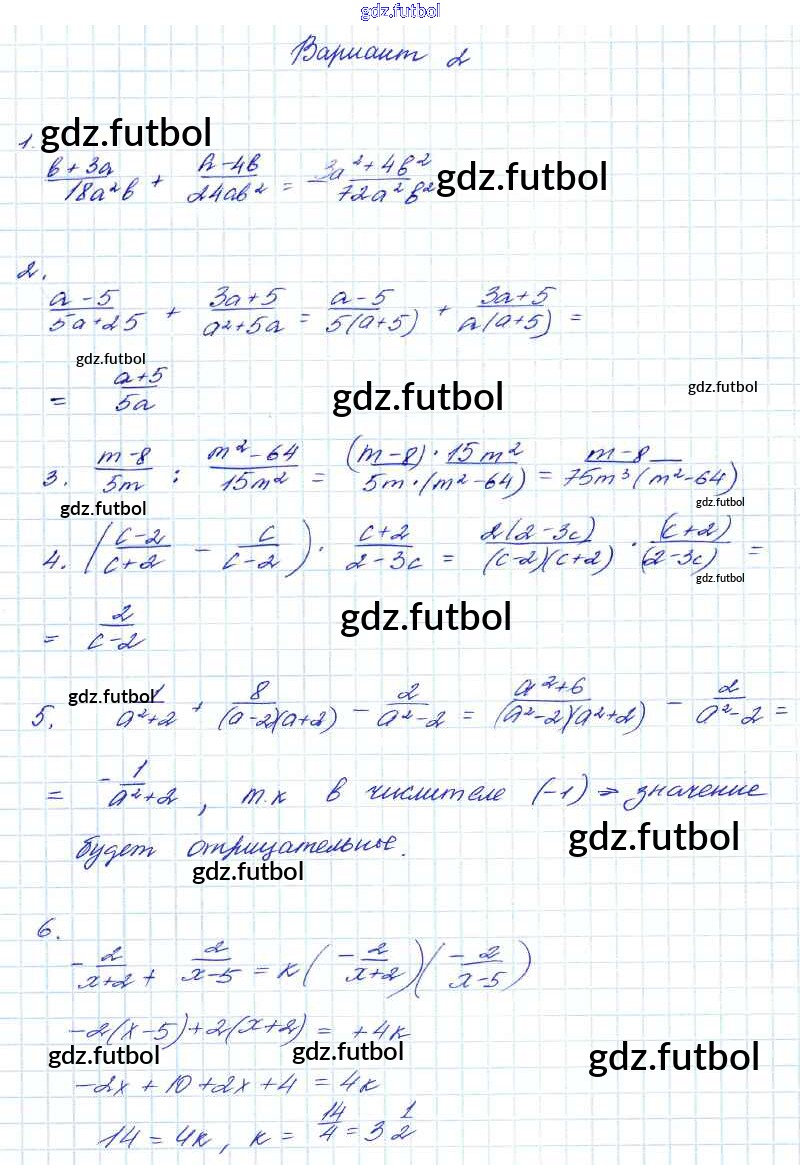 gdz.futbol
Вариант 2
1. gdz.futbol
(в+3a)/(18a²в) + (a-4в)/(24aв²) = (3a²+4в²)/(72a²в²) gdz.futbol
2.
(a-5)/(5a+25) + (3a+5)/(a²+5a) = (a-5)/(5(a+5)) + (3a+5)/(a(a+5)) =
gdz.futbol
= (a+5)/(5a) gdz.futbol gdz.futbol
3. (m-8)/(5m) : (m²-64)/(15m²) = ((m-8)·15m²)/(5m·(m²-64)) = (m-8)/(75m³(m²-64))
gdz.futbol gdz.futbol
4. ((c-2)/(c+2) - c/(c-2)) · (c+2)/(2-3c) = (2(2-3c))/((c-2)(c+2)) · (c+2)/(2-3c) =
gdz.futbol
= 2/(c-2) gdz.futbol
gdz.futbol
5. 1/(a²+2) + 8/((a-2)(a+2)) - 2/(a²-2) = (a²+6)/((a²-2)(a²+2)) - 2/(a²-2) =
= -1/(a²+2), т.к в числителе (-1) ⇒ значение
gdz.futbol
будет отрицательные.
gdz.futbol
6.
-2/(x+2) + 2/(x-5) = к(-2/(x+2))(-2/(x-5))
-2(x-5)+2(x+2) = +4к
gdz.futbol gdz.futbol gdz.futbol
-2x+10+2x+4 = 4к
14 = 4к, к = 14/4 = 3 1/2